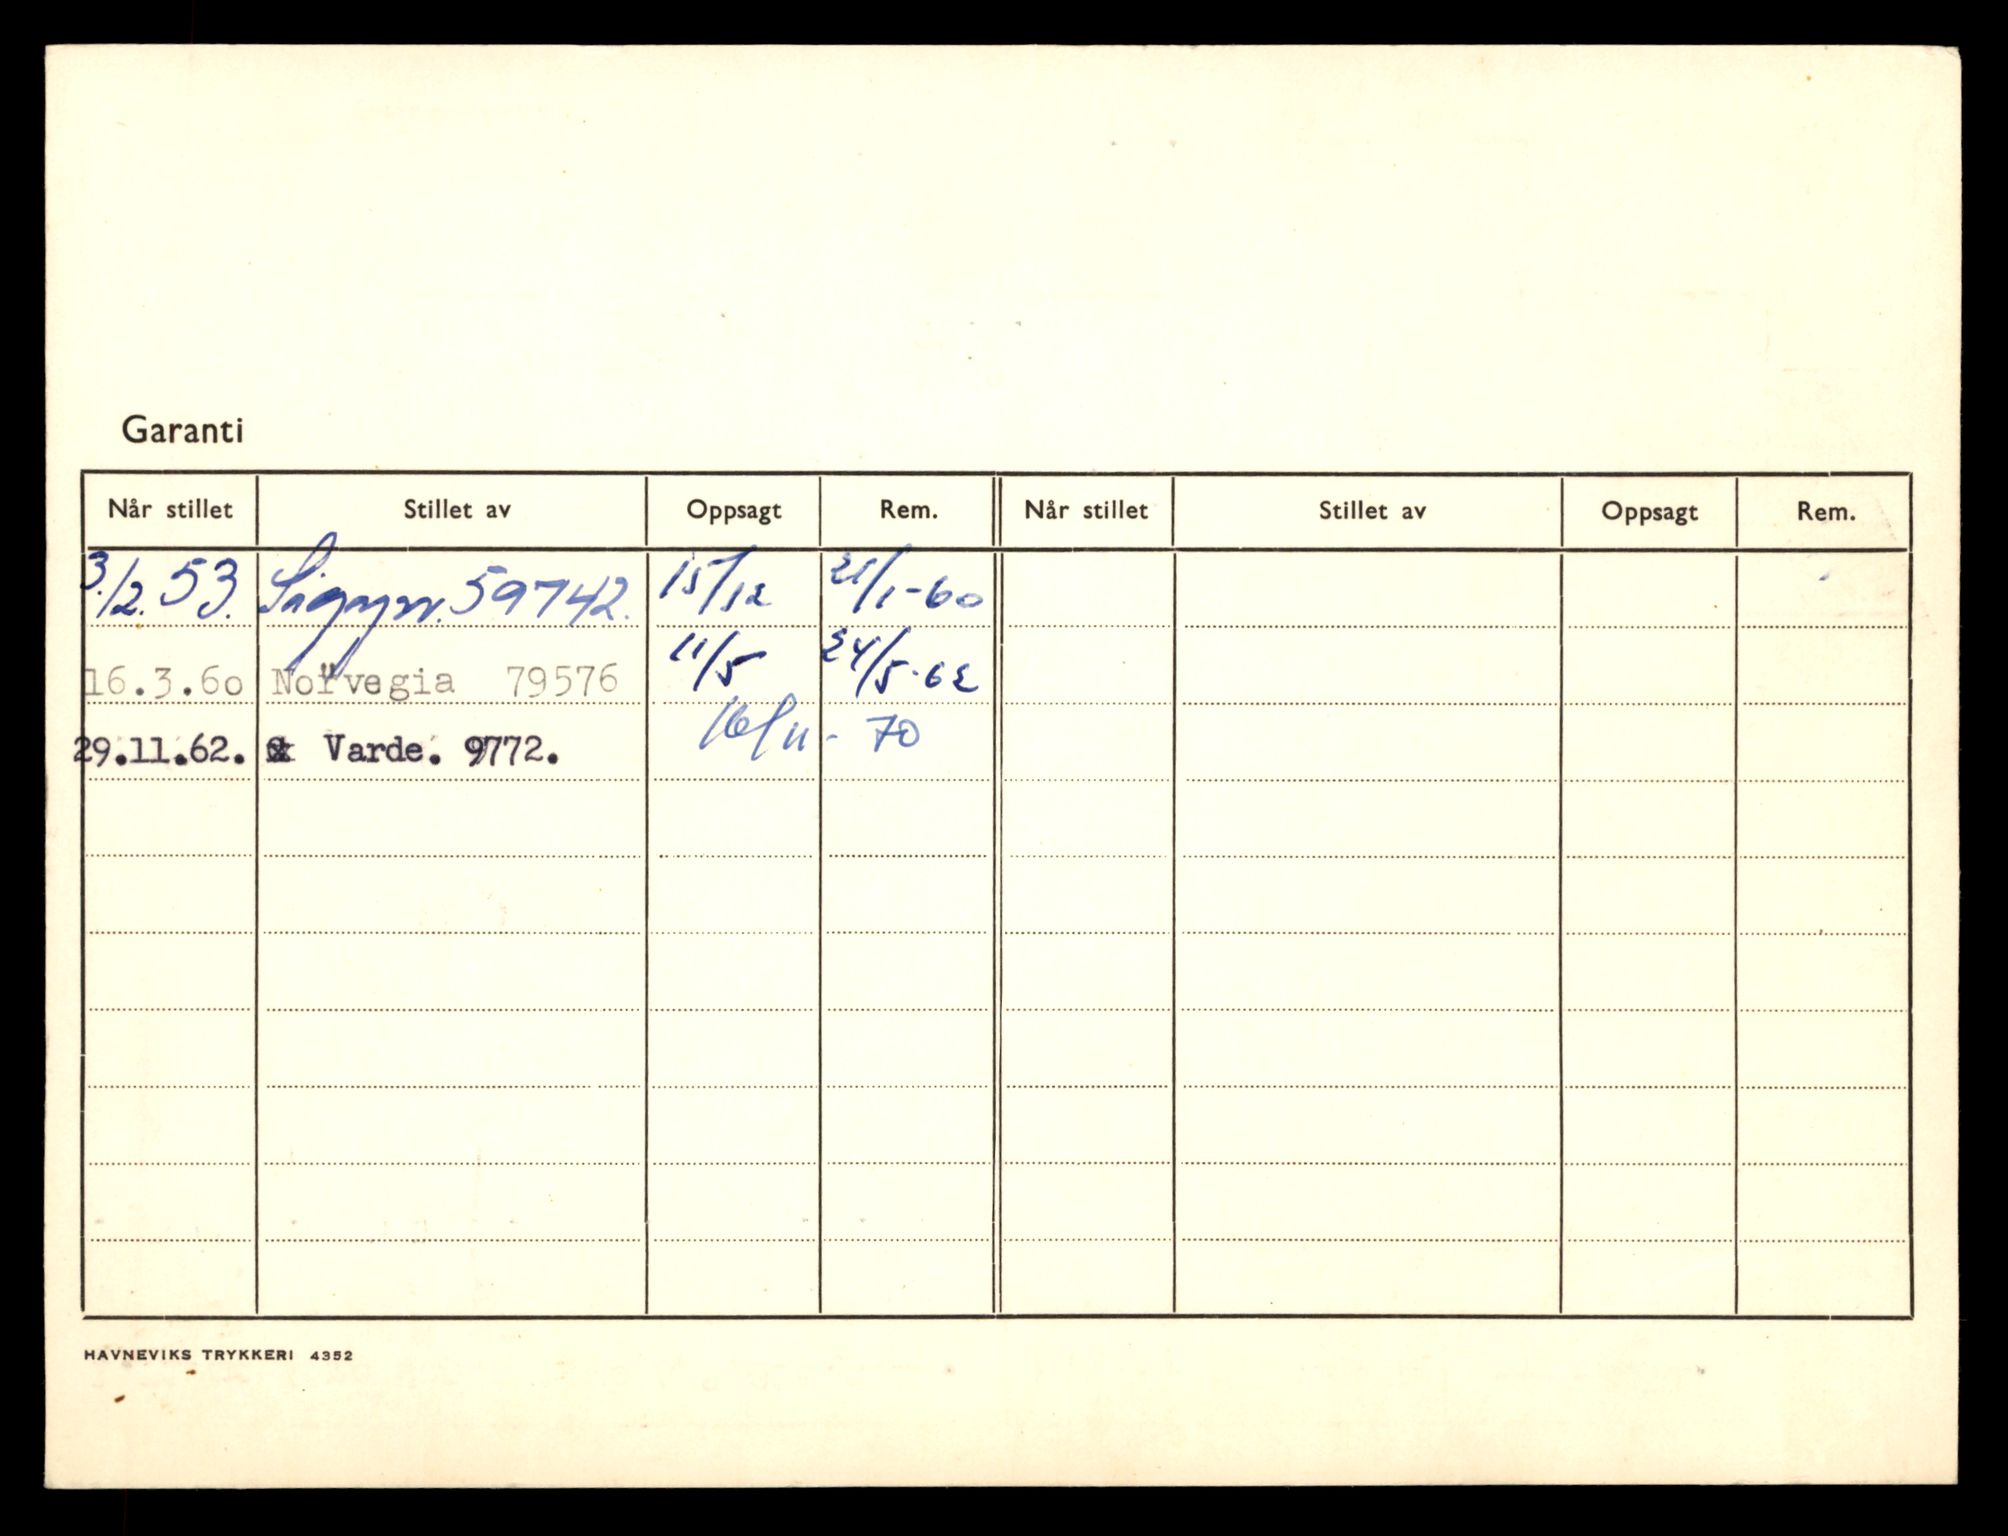 Garanti
Når stillet Stillet av Oppsagt Rem. Når stillet Stillet av Oppsagt Rem.
3./2. 53. 59742. 15/12 21/1-60
16.3.60 Norvegia 79576 11/5 24/5-62
29.11.62. Varde. 9772. 16/11- 70
HAVNEVIKS TRYKKERI 4352